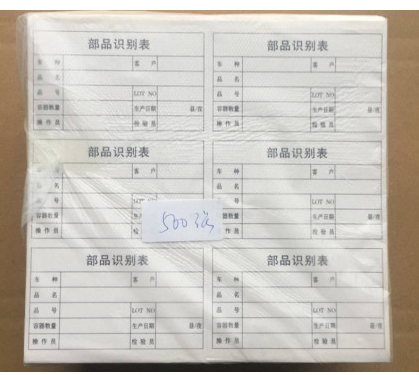 部品识别表
车 种 客 户
品 名
品 号 LOT NO
容器数量 生产日期 昼/夜
操作员 检验员
部品识别表
车 种 客 户
品 名
品 号 LOT NO
容器数量 生产日期 昼/夜
操作员 检验员
部品识别表
车 种 客 户
品 名
品 号 LOT NO
容器数量 生产日期
操作员
部品识别表
车 种 客 户
品 名
品 号 LOT NO
器数量 生产日期 昼/夜
作员 检验员
500张
部品识别表
车 种 客 户
品 名
品 号 LOT NO
容器数量 生产日期 昼/夜
操作员 检验员
部品识别表
车 种 客 户
品 名
品 号 LOT NO
容器数量 生产日期 昼/夜
操作员 检验员